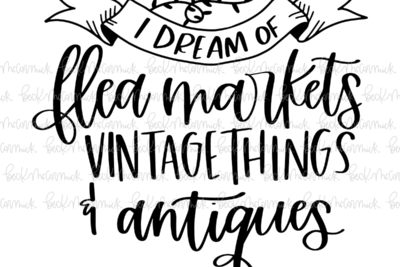 I DREAM OF
flea markets
VINTAGE THINGS
& antiques